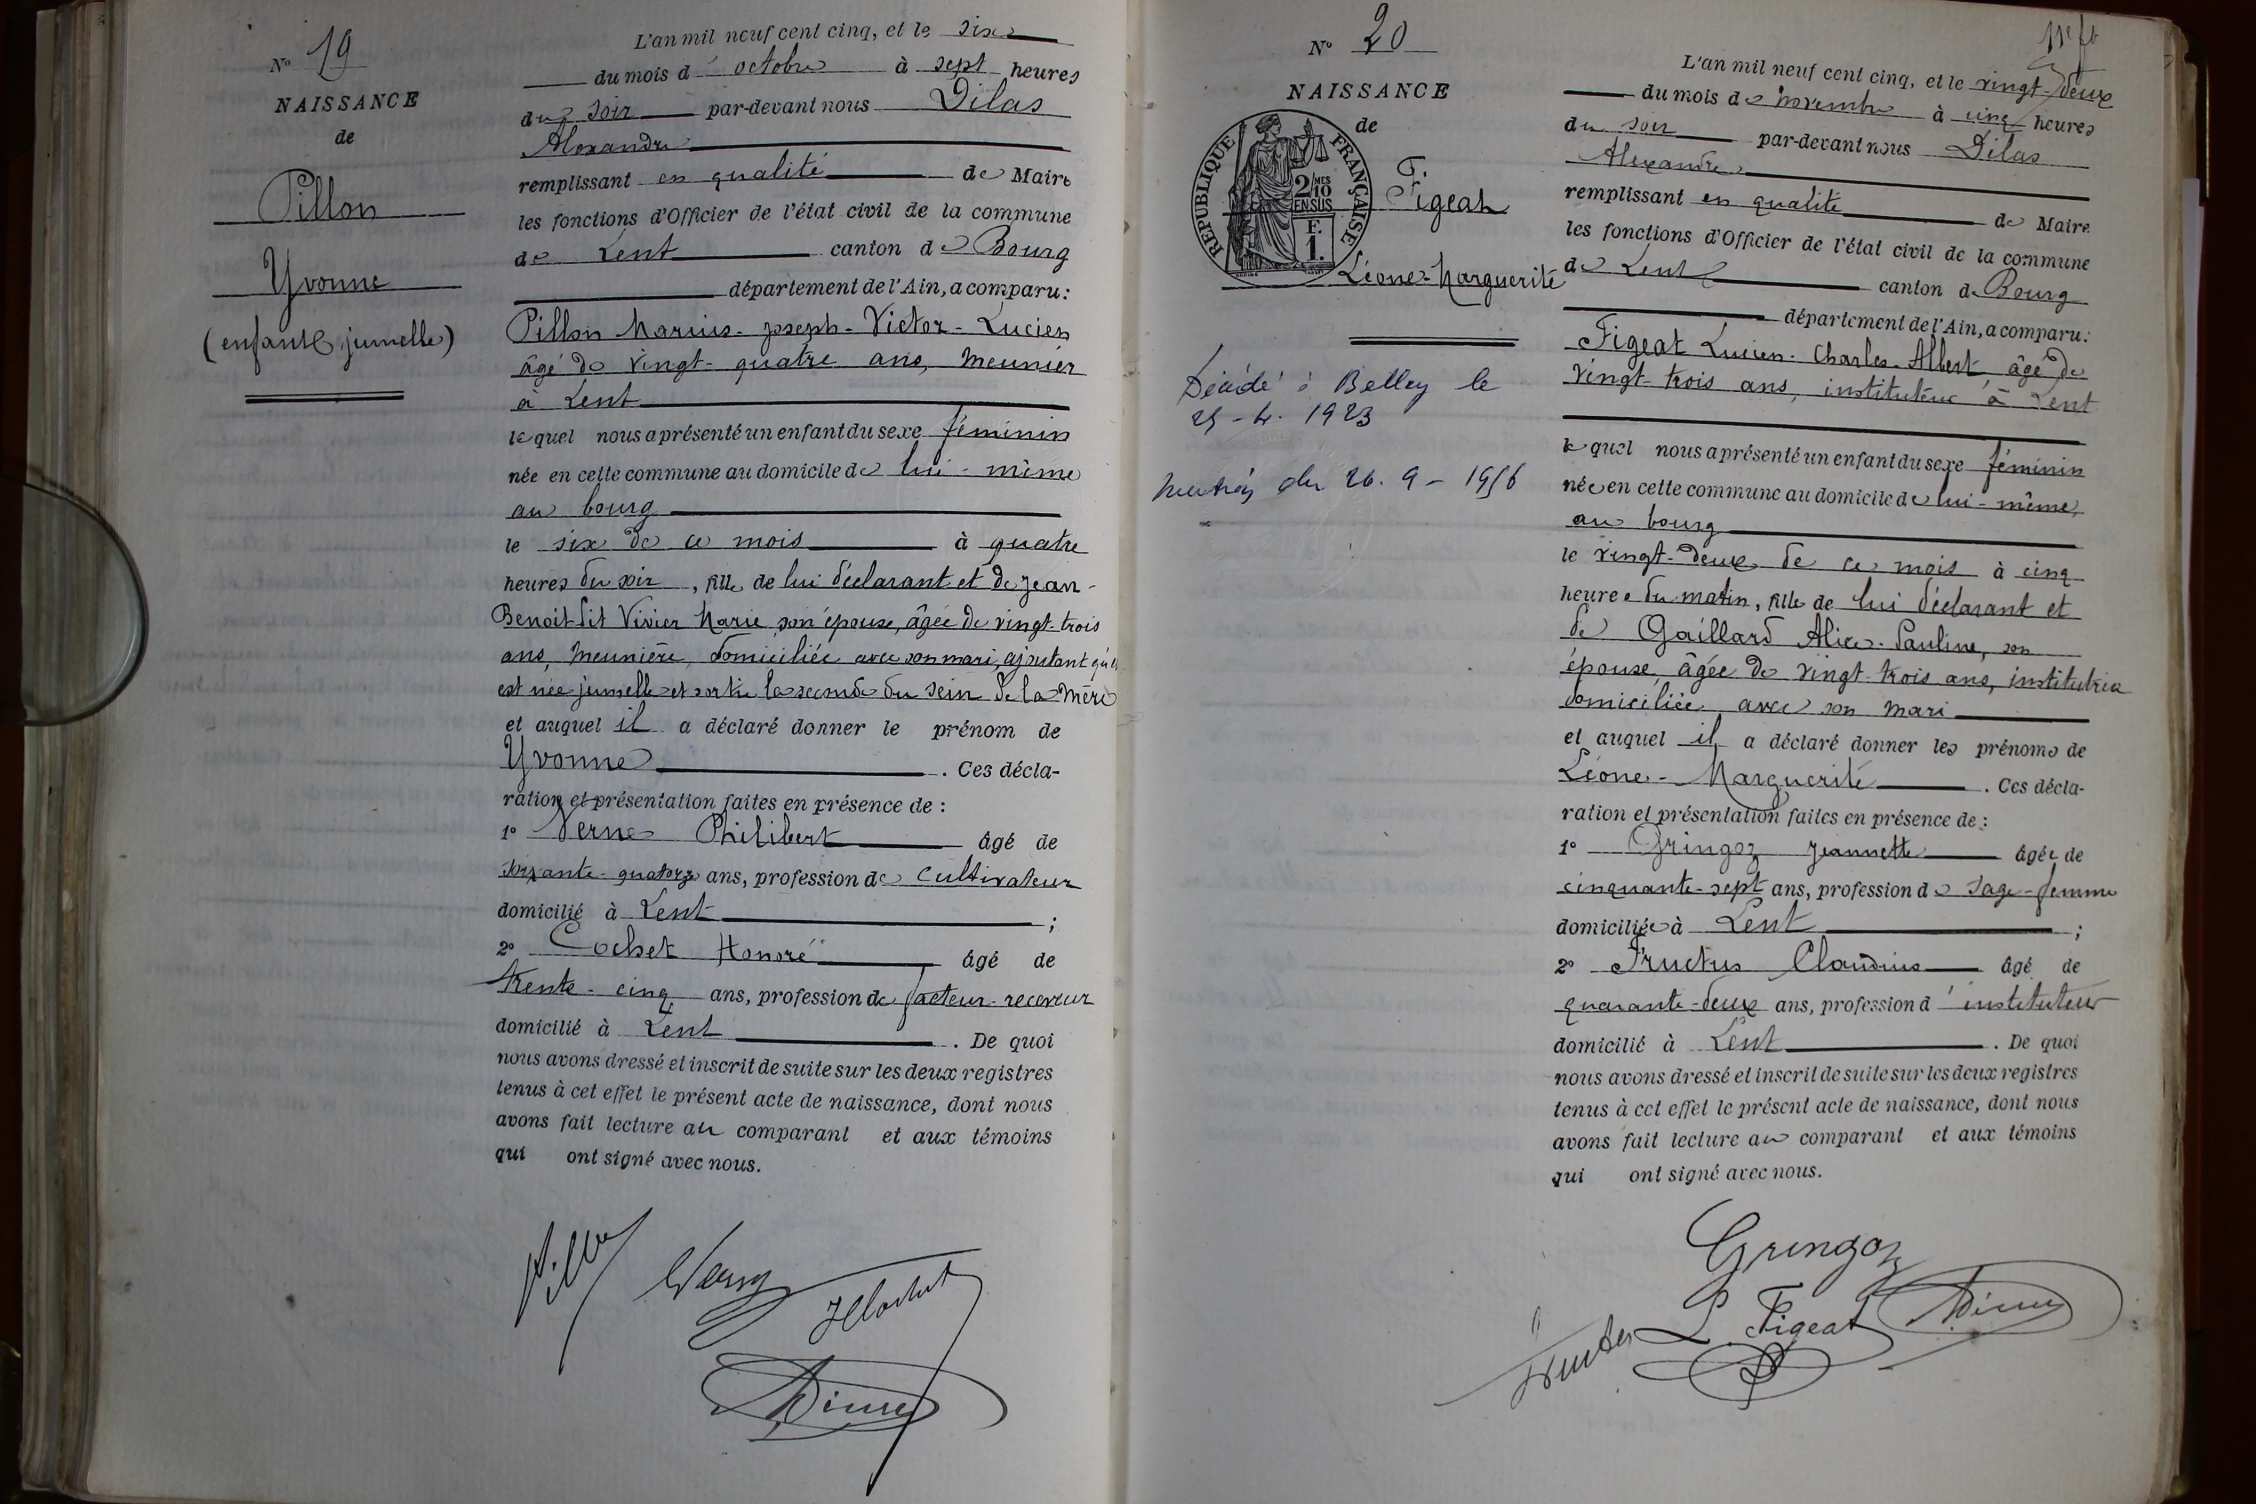 N° 19
NAISSANCE
de
Pillon
Yvonne
(enfant jumelle)
L'an mil neuf cent cinq, et le six
du mois d'octobre à sept heures
du soir par-devant nous Dilas
Alexandre
remplissant en qualité de Maire
les fonctions d'Officier de l'état civil de la commune
de Lent canton de Bourg
département de l'Ain, a comparu:
Pillon Marius-Joseph-Victor-Lucien
âgé de vingt-quatre ans, meunier
à Lent
lequel nous a présenté un enfant du sexe féminin
née en cette commune au domicile de lui-même
au bourg
le six de ce mois à quatre
heures du soir, fille de lui déclarant et de Jean-
Benoit dit Vivier Marie son épouse, âgée de vingt-trois
ans, meunière, domiciliée avec son mari, ajoutant qu'elle
est née jumelle et sortie la seconde du sein de la mère
et auquel il a déclaré donner le prénom de
Yvonne. Ces décla-
ration et présentation faites en présence de:
1° Verne Philibert âgé de
soixante-quatorze ans, profession de cultivateur
domicilié à Lent;
2° Cochet Honoré âgé de
trente-cinq ans, profession de facteur-receveur
domicilié à Lent. De quoi
nous avons dressé et inscrit de suite sur les deux registres
tenus à cet effet le présent acte de naissance, dont nous
avons fait lecture au comparant et aux témoins
qui ont signé avec nous.
N° 20
NAISSANCE
de
RÉPUBLIQUE FRANÇAISE
2/10 MES
EN SUS
F.
1.
F.
Figeat
Léone-Marguerite
Décédé à Belley le
25-4-1923
du 26-9-1956
L'an mil neuf cent cinq, et le vingt-deux
du mois de novembre à cinq heures
du soir par-devant nous Dilas
Alexandre
remplissant en qualité de Maire
les fonctions d'Officier de l'état civil de la commune
de Lent canton de Bourg
département de l'Ain, a comparu:
Figeat Lucien-Charles-Albert âgé de
vingt-trois ans, instituteur à Lent
lequel nous a présenté un enfant du sexe féminin
née en cette commune au domicile de lui-même,
au bourg
le vingt-deux de ce mois à cinq
heures du matin, fille de lui déclarant et
de Gaillard Alice-Pauline, son
épouse, âgée de vingt-trois ans, institutrice
domiciliée avec son mari
et auquel il a déclaré donner les prénoms de
Léone-Marguerite. Ces décla-
ration et présentation faites en présence de:
1° Gringoz Jeannette âgée de
cinquante-sept ans, profession de sage-femme
domiciliée à Lent;
2° Fructus Claudius âgé de
quarante-deux ans, profession d'instituteur
domicilié à Lent. De quoi
nous avons dressé et inscrit de suite sur les deux registres
tenus à cet effet le présent acte de naissance, dont nous
avons fait lecture au comparant et aux témoins
qui ont signé avec nous.
Gringoz
L. Figeat